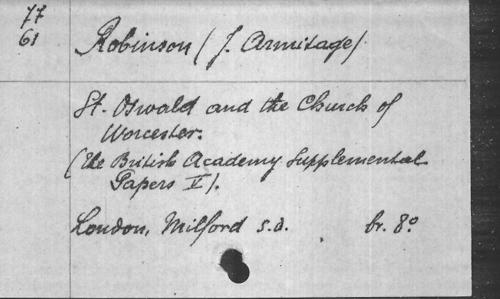 77
61
Robinson (J. Armitage).
St. Oswald and the Church of
Worcester.
(The British Academy Supplemental
Papers V).
London, Milford s.d. br. 8º